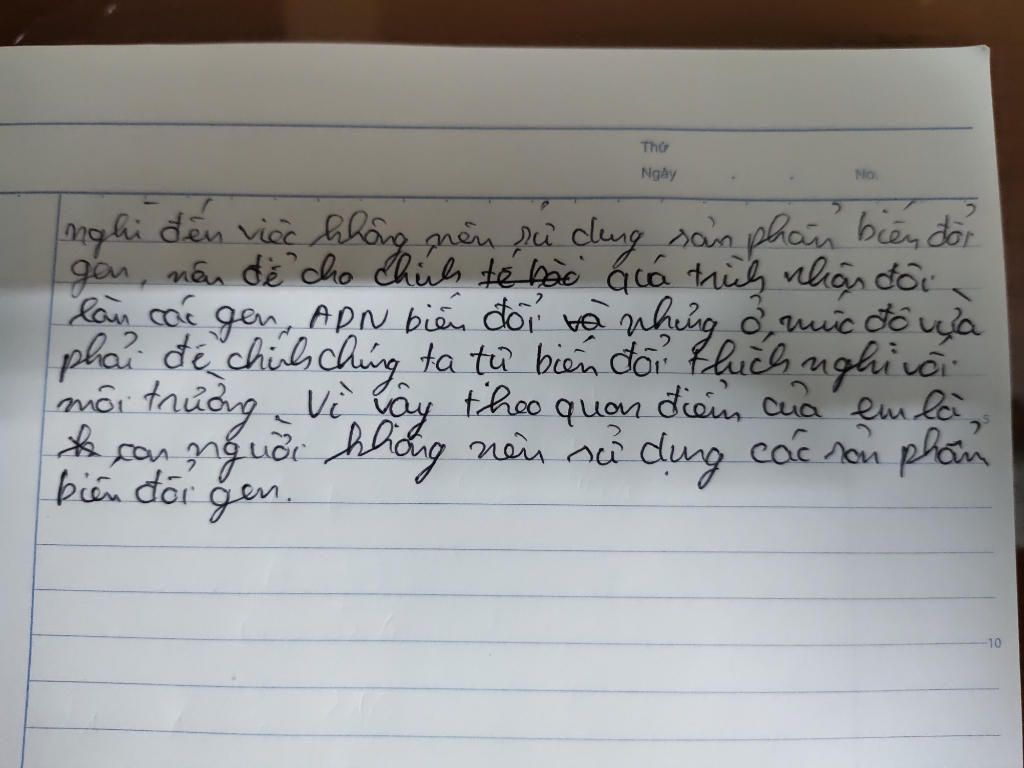 Thứ
Ngày . . No.
nghĩ đến việc không nên sử dụng sản phẩm biến đổi
gen, nên để cho chính tế bào quá trình nhân đôi
làm các gen, ADN biến đổi và nhưng ở mức độ vừa
phải để chính chúng ta tự biến đổi thích nghi với
môi trường. Vì vậy theo quan điểm của em là,
con người không nên sử dụng các sản phẩm
biến đổi gen.
10